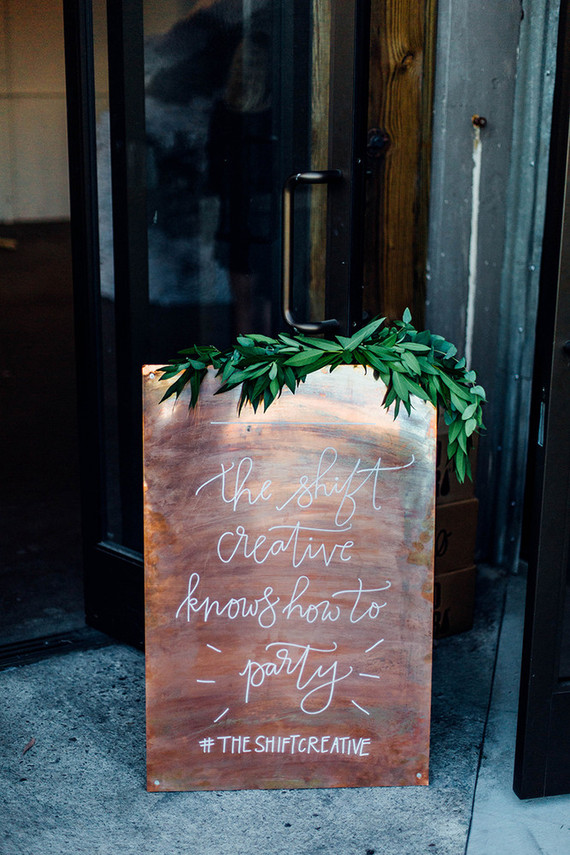 the shift
creative
knows how to
party
#THESHIFTCREATIVE